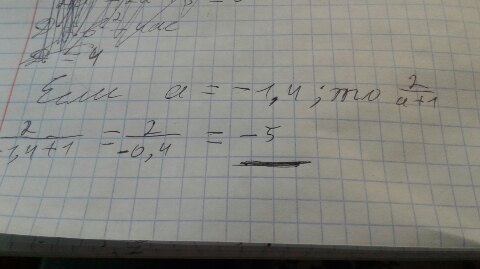 = 4
Если a = -1,4; то 2/(a+1)
2/(-1,4+1) = 2/(-0,4) = -5